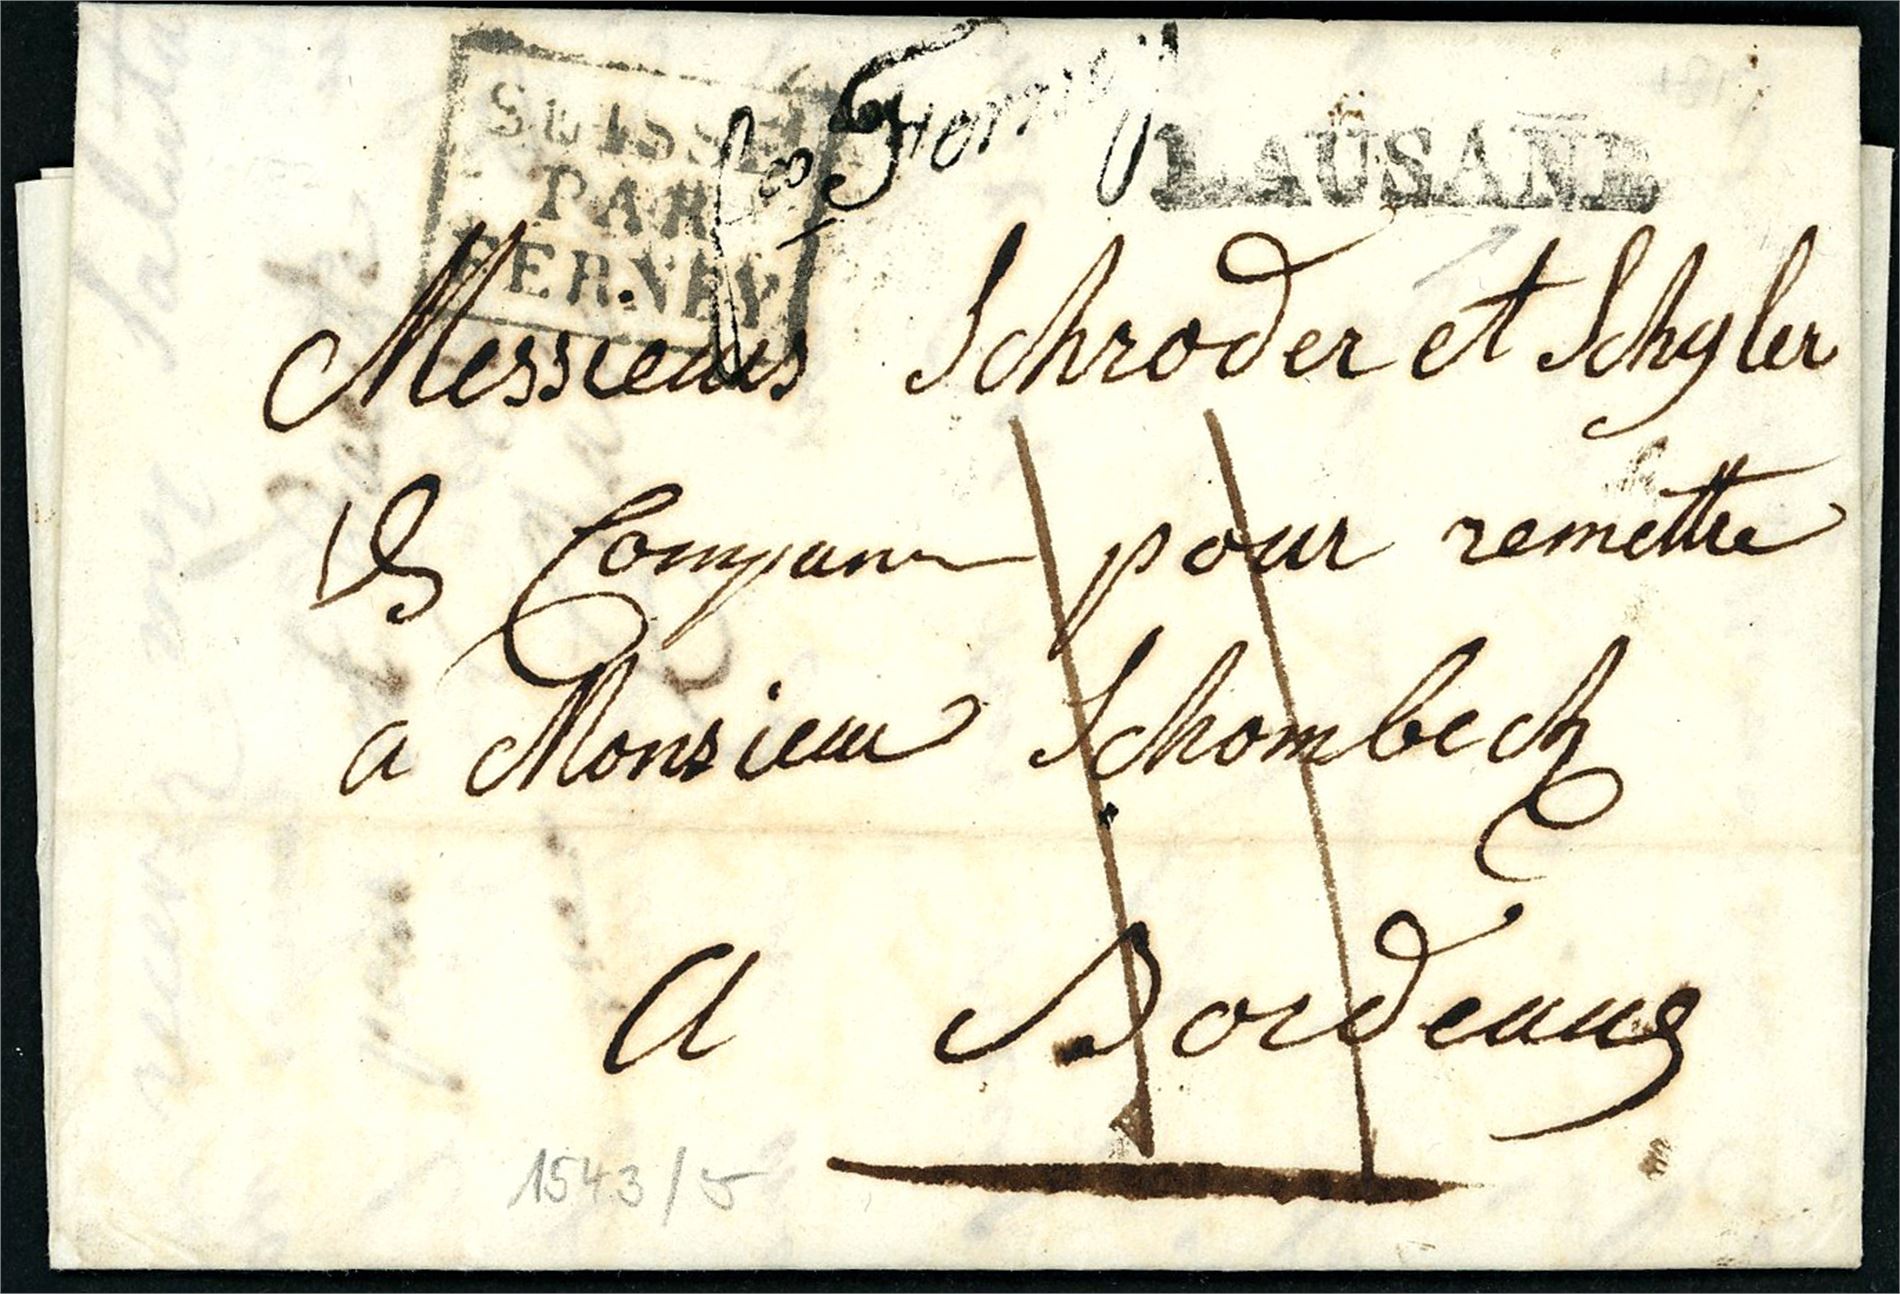 SUISSE
PAR
FERNEY
Ferney
LAUSANE
Messieurs Schroder et Schyler
& Compani pour remettre
a Monsieur Schombeck
a Bordeaux
11
1543/5